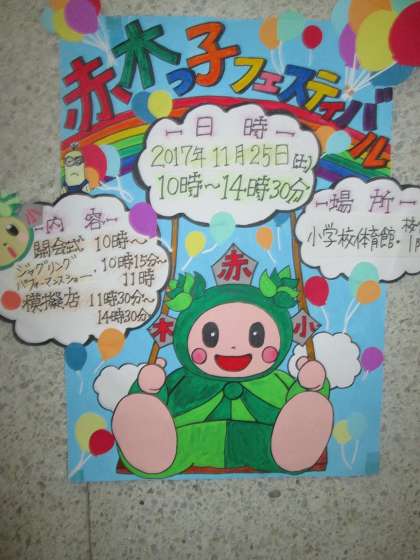 赤木っ子フェスティバル
日時
2017年11月25日(土)
10時～14時30分
場所
小学校体育館・校
内容
開会式 10時～
ジャグリング
パフォーマンスショー・10時15分～
11時
模擬店 11時30分～
14時30分
赤
木
小